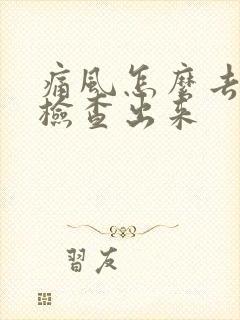 痛風怎麼去
檢查出来
習友